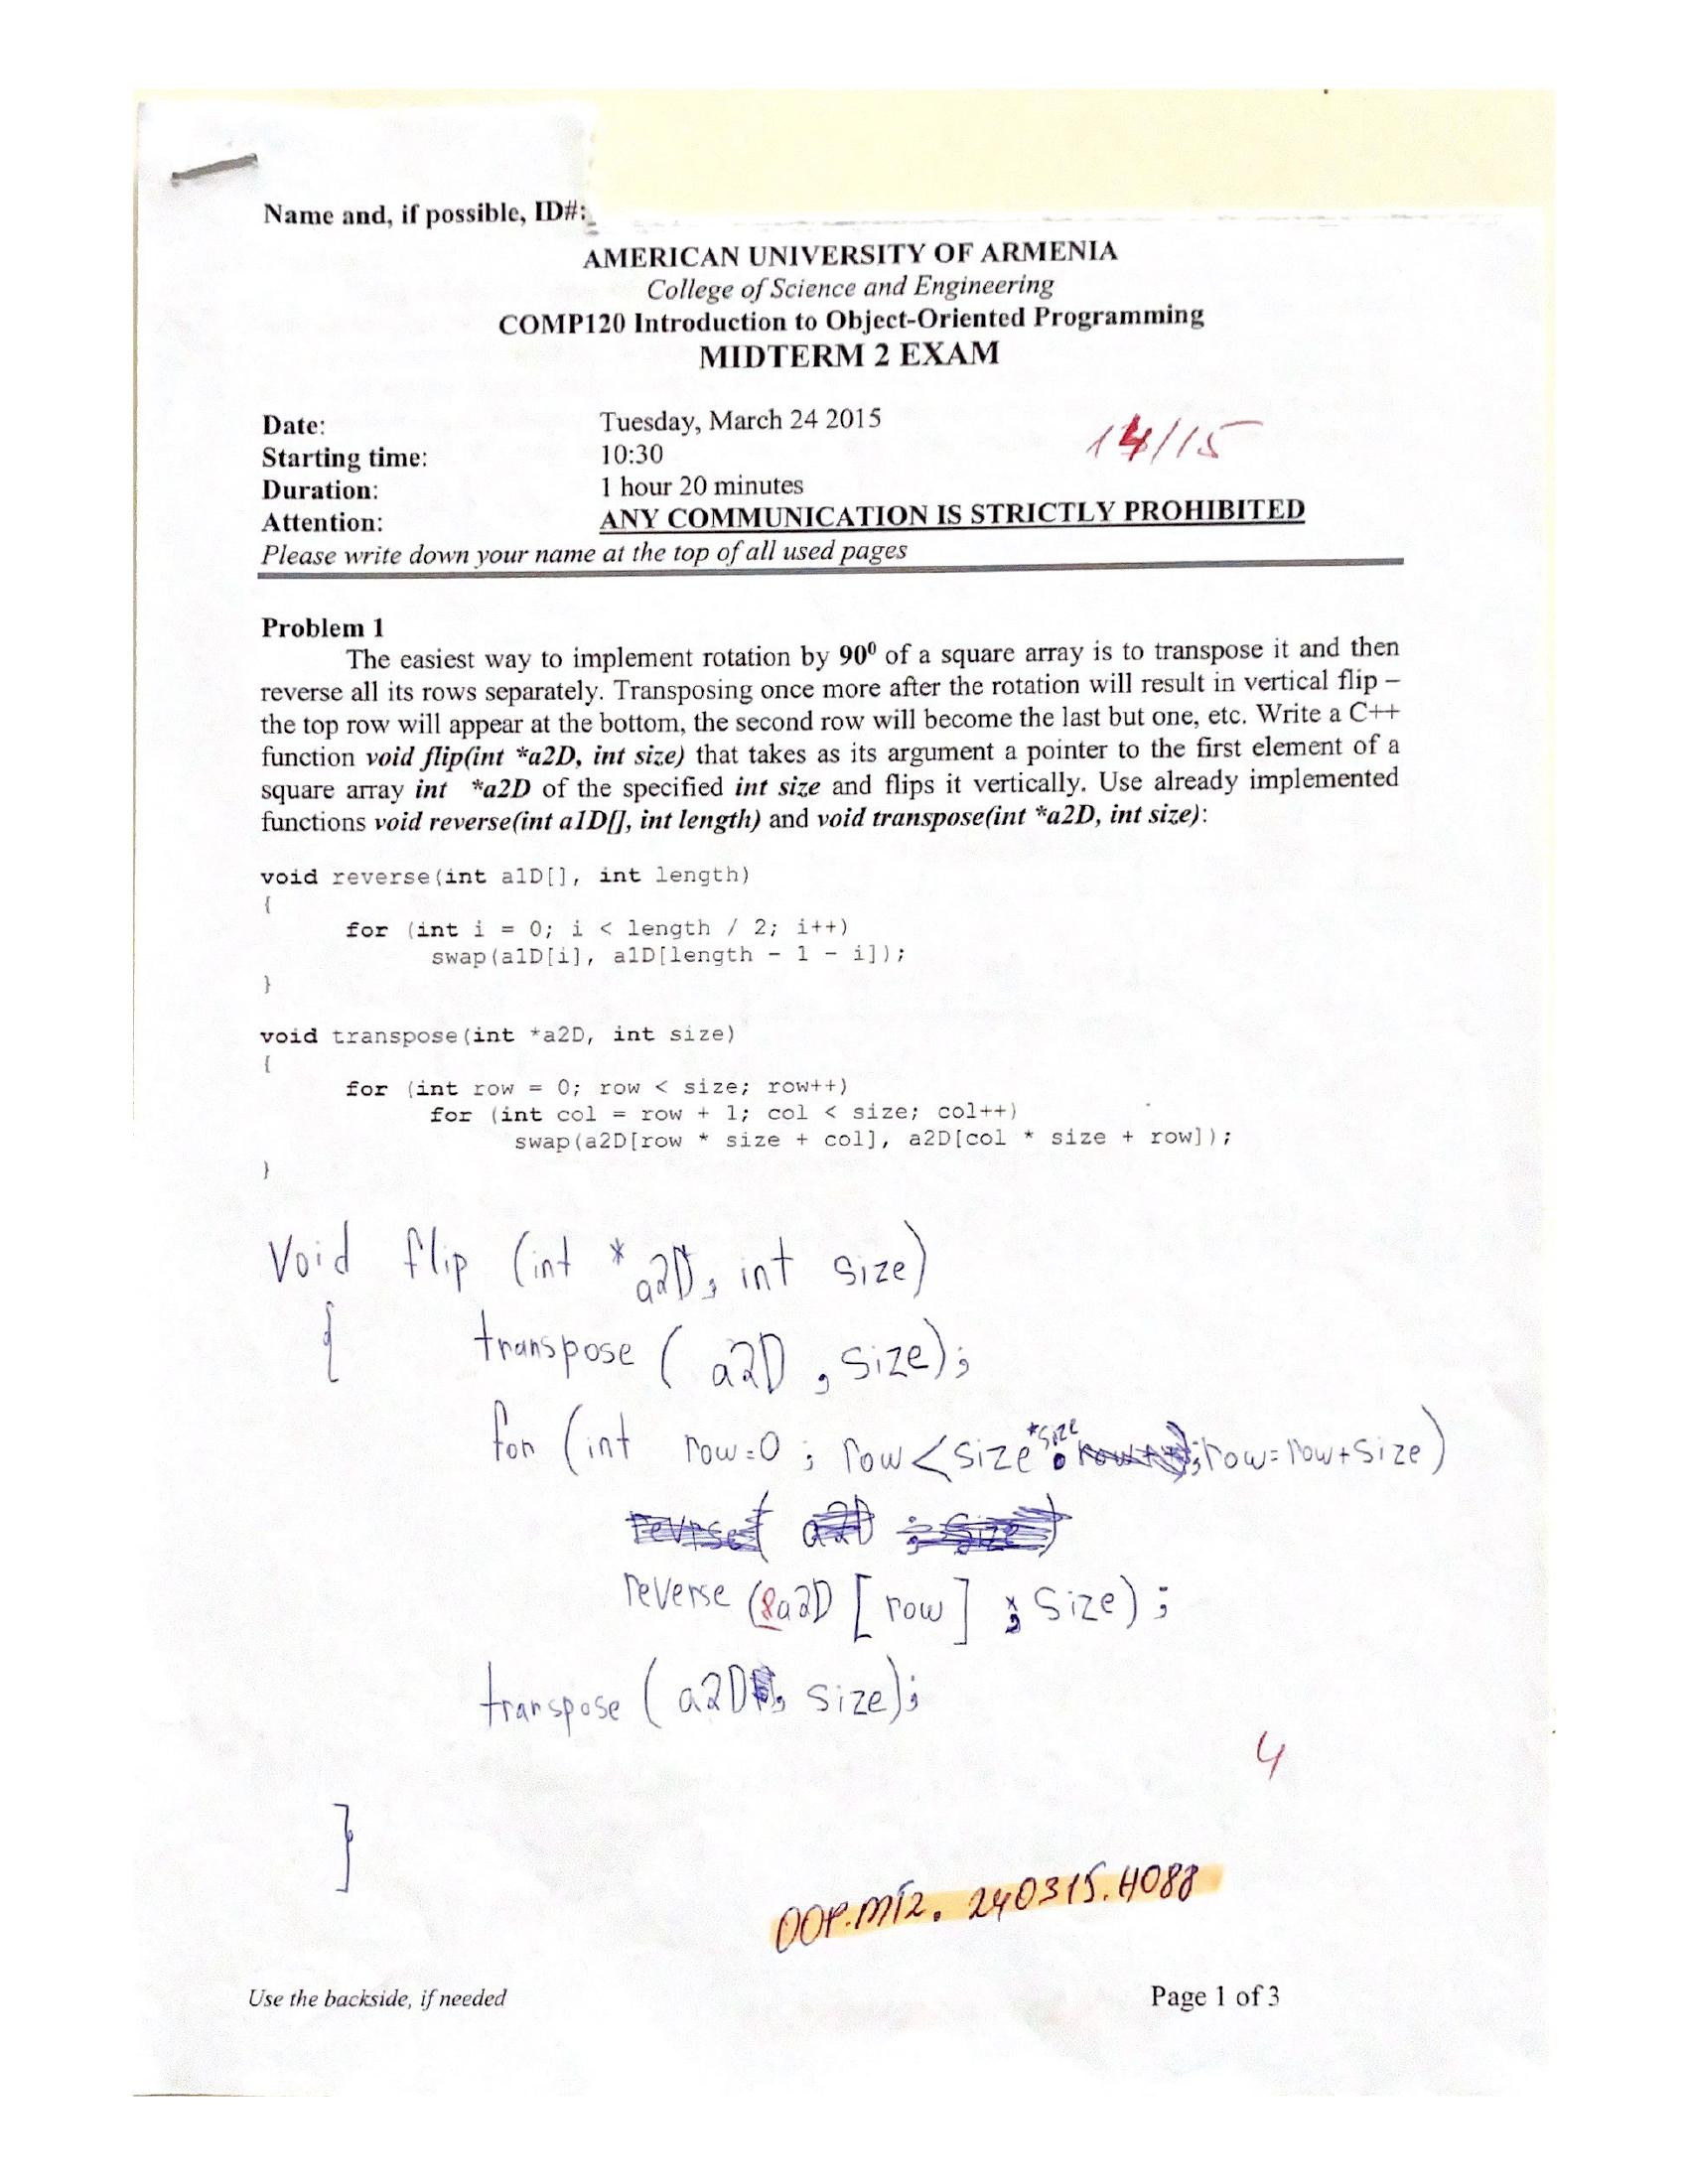 Name and, if possible, ID#:
AMERICAN UNIVERSITY OF ARMENIA
College of Science and Engineering
COMP120 Introduction to Object-Oriented Programming
MIDTERM 2 EXAM
Date: Tuesday, March 24 2015
14/15
Starting time: 10:30
Duration: 1 hour 20 minutes
Attention: ANY COMMUNICATION IS STRICTLY PROHIBITED
Please write down your name at the top of all used pages
Problem 1
The easiest way to implement rotation by 90⁰ of a square array is to transpose it and then
reverse all its rows separately. Transposing once more after the rotation will result in vertical flip –
the top row will appear at the bottom, the second row will become the last but one, etc. Write a C++
function void flip(int *a2D, int size) that takes as its argument a pointer to the first element of a
square array int *a2D of the specified int size and flips it vertically. Use already implemented
functions void reverse(int a1D[], int length) and void transpose(int *a2D, int size):
void reverse(int a1D[], int length)
{
for (int i = 0; i < length / 2; i++)
swap(a1D[i], a1D[length - 1 - i]);
}
void transpose(int *a2D, int size)
{
for (int row = 0; row < size; row++)
for (int col = row + 1; col < size; col++)
swap(a2D[row * size + col], a2D[col * size + row]);
}
Void flip (int * a2D, int size)
{ transpose ( a2D , size);
for (int row=0 ; row<size*size ;row=row+size)
reverse (&a2D [ row ] , size) ;
transpose ( a2D , size);
4
}
OOP.MT2. 240315.H088
Use the backside, if needed
Page 1 of 3